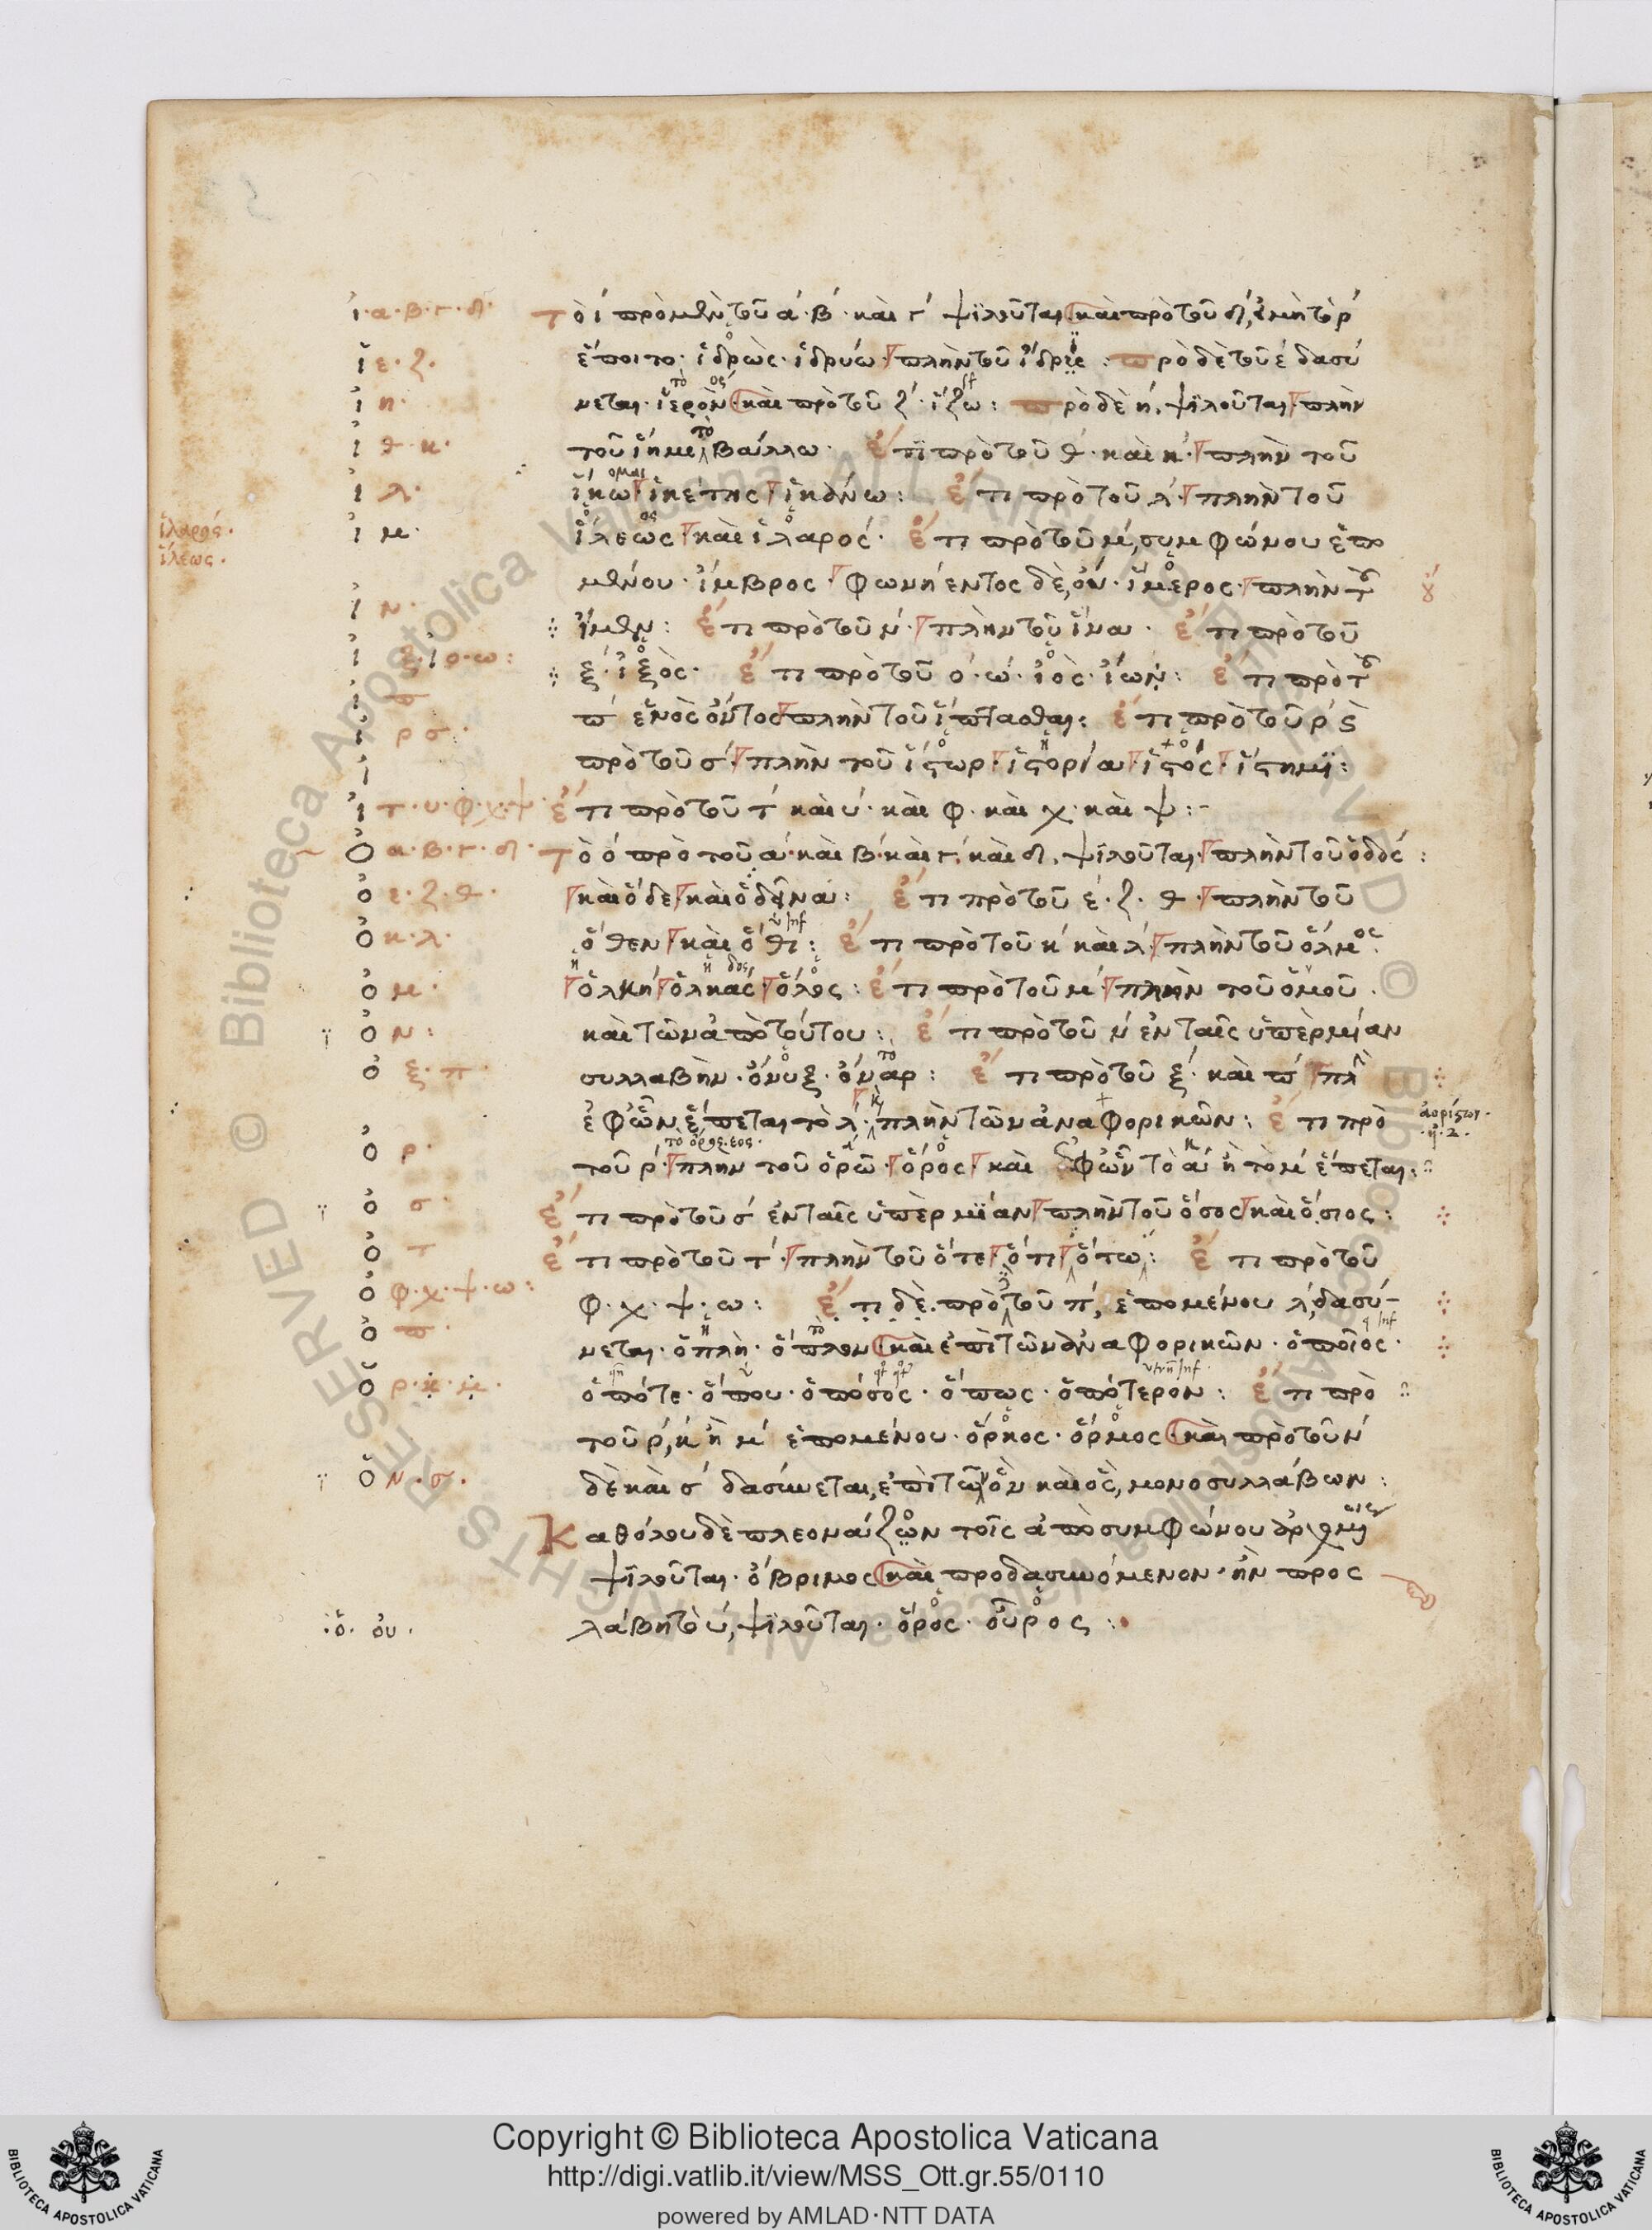 ἰ·α·β·γ·δ· Τὸ ἰ πρὸ μὲν τοῦ α·β·καὶ γ ψιλοῦται· καὶ πρὸ τοῦ δ, εἰ μὴ τὸ ρ
ἵ ε·ζ· ἕποιτο· ἱδρὼς· ἱδρύω· πλὴν τοῦ ἴδρις: πρὸ δὲ τοῦ ε δασύ
ἰ η· νεται· ἱερὸν· καὶ πρὸ τοῦ ζ· ἵζω: πρὸ δὲ η, ψιλοῦται· πλὴν
ἰ θ·κ· τοῦ ἵημι τὸ βάλλω· ἔτι πρὸ τοῦ θ·καὶ κ· πλὴν τοῦ
ἰ λ· ἵκω ἱκέτης ἱκάνω: ἔτι πρὸ τοῦ λ· πλὴν τοῦ
ἱλαρός·
ἵλεως·
ἰ μ· ἵλεως καὶ ἱλαρός· ἔτι πρὸ τοῦ μ, συμφώνου ἑπο
μένου· ἴμβρος· φωνήεντος δὲ, οὔ· ἵμερος· πλὴν τοῦ
ἰ ν· ἴμεν: ἔτι πρὸ τοῦ ν· πλὴν τοῦ ἵνα· ἔτι πρὸ τοῦ
ἰ ξ·ἰ ο·ω: ξ· ἰξὸς· ἔτι πρὸ τοῦ ο·ω· ἰὸς· ἰών: ἔτι πρὸ τοῦ
ἰ π π ἑνὸς ὄντος πλὴν τοῦ ἵπτασθαι: ἔτι πρὸ τοῦ ρ καὶ
ἰ ρ σ· πρὸ τοῦ σ· πλὴν τοῦ ἵστωρ· ἱστορία ἱστός· ἵστημι:
ἰ τ·υ·φ·χ·ψ· ἔτι πρὸ τοῦ τ καὶ υ·καὶ φ·καὶ χ·καὶ ψ:-
ὀ α·β·γ·δ· Τὸ ὀ πρὸ τοῦ α·καὶ β·καὶ γ·καὶ δ, ψιλοῦται· πλὴν τοῦ ὁδός:
ὀ ε·ζ·θ· καὶ ὅδε καὶ ὁδεῖνα: ἔτι πρὸ τοῦ ε·ζ·θ· πλὴν τοῦ
ὀ κ·λ· ὅθεν καὶ ὅθι: ἔτι πρὸ τοῦ κ καὶ λ· πλὴν τοῦ ὅλμος
ὀ μ· ὁλκή ὁλκάς· ὅλος: ἔτι πρὸ τοῦ μ· πλὴν τοῦ ὁμοῦ·
ὀ ν: καὶ τῶν ἀπὸ τούτου: ἔτι πρὸ τοῦ ν ἐν ταῖς ὑπὲρ μίαν
ὀ ξ·π· συλλαβὴν· ὄνυξ· ὄναρ: ἔτι πρὸ τοῦ ξ·καὶ π· πλὴν
ἐφ' ὧν ἕπεται τὸ λ· πλὴν τῶν ἀναφορικῶν: ἔτι πρὸ
ἀορίστων·
ὀ ρ· τοῦ ρ· πλὴν τοῦ ὁρῶ· ὅρος· καὶ ἐφ' ὧν τὸ κ ἢ τὸ μ ἕπεται:
ὀ σ· ἔτι πρὸ τοῦ σ ἐν ταῖς ὑπὲρ μίαν πλὴν τοῦ ὅσος καὶ ὅσιος:
ὀ τ ἔτι πρὸ τοῦ τ· πλὴν τοῦ ὅτε ὅτι ὅτω: ἔτι πρὸ τοῦ
ὀ φ·χ·ψ·ω: φ·χ·ψ·ω: ἔτι δὲ πρὸ τοῦ π, ἑπομένου λ, δασύ-
ὁ π· νεται· ὁπλὴ· ὅπλον καὶ ἐπὶ τῶν ἀναφορικῶν· ὁποῖος·
ὁ ρ·κ·μ· ὁπότε· ὅπου· ὁπόσος· ὅπως· ὁπότερον: ἔτι πρὸ
τοῦ ρ, κ ἢ μ ἑπομένου· ὅρκος· ὅρμος καὶ πρὸ τοῦ ν
ὁ ν·σ· δὲ καὶ σ δασύνεται, ἐπὶ τῶν ὃν καὶ ὃς, μονοσυλλάβων:
Καθόλου δὲ πλεονάζον τοῖς ἀπὸ συμφώνου ἀρχομένοις
ψιλοῦται· ὄβριμος καὶ προδασυνόμενον· ἢν προς
·ὅ· οὐ· λάβῃ τὸ υ, ψιλοῦται· ὅρος· οὖρος:
Copyright © Biblioteca Apostolica Vaticana
http://digi.vatlib.it/view/MSS_Ott.gr.55/0110
powered by AMLAD·NTT DATA